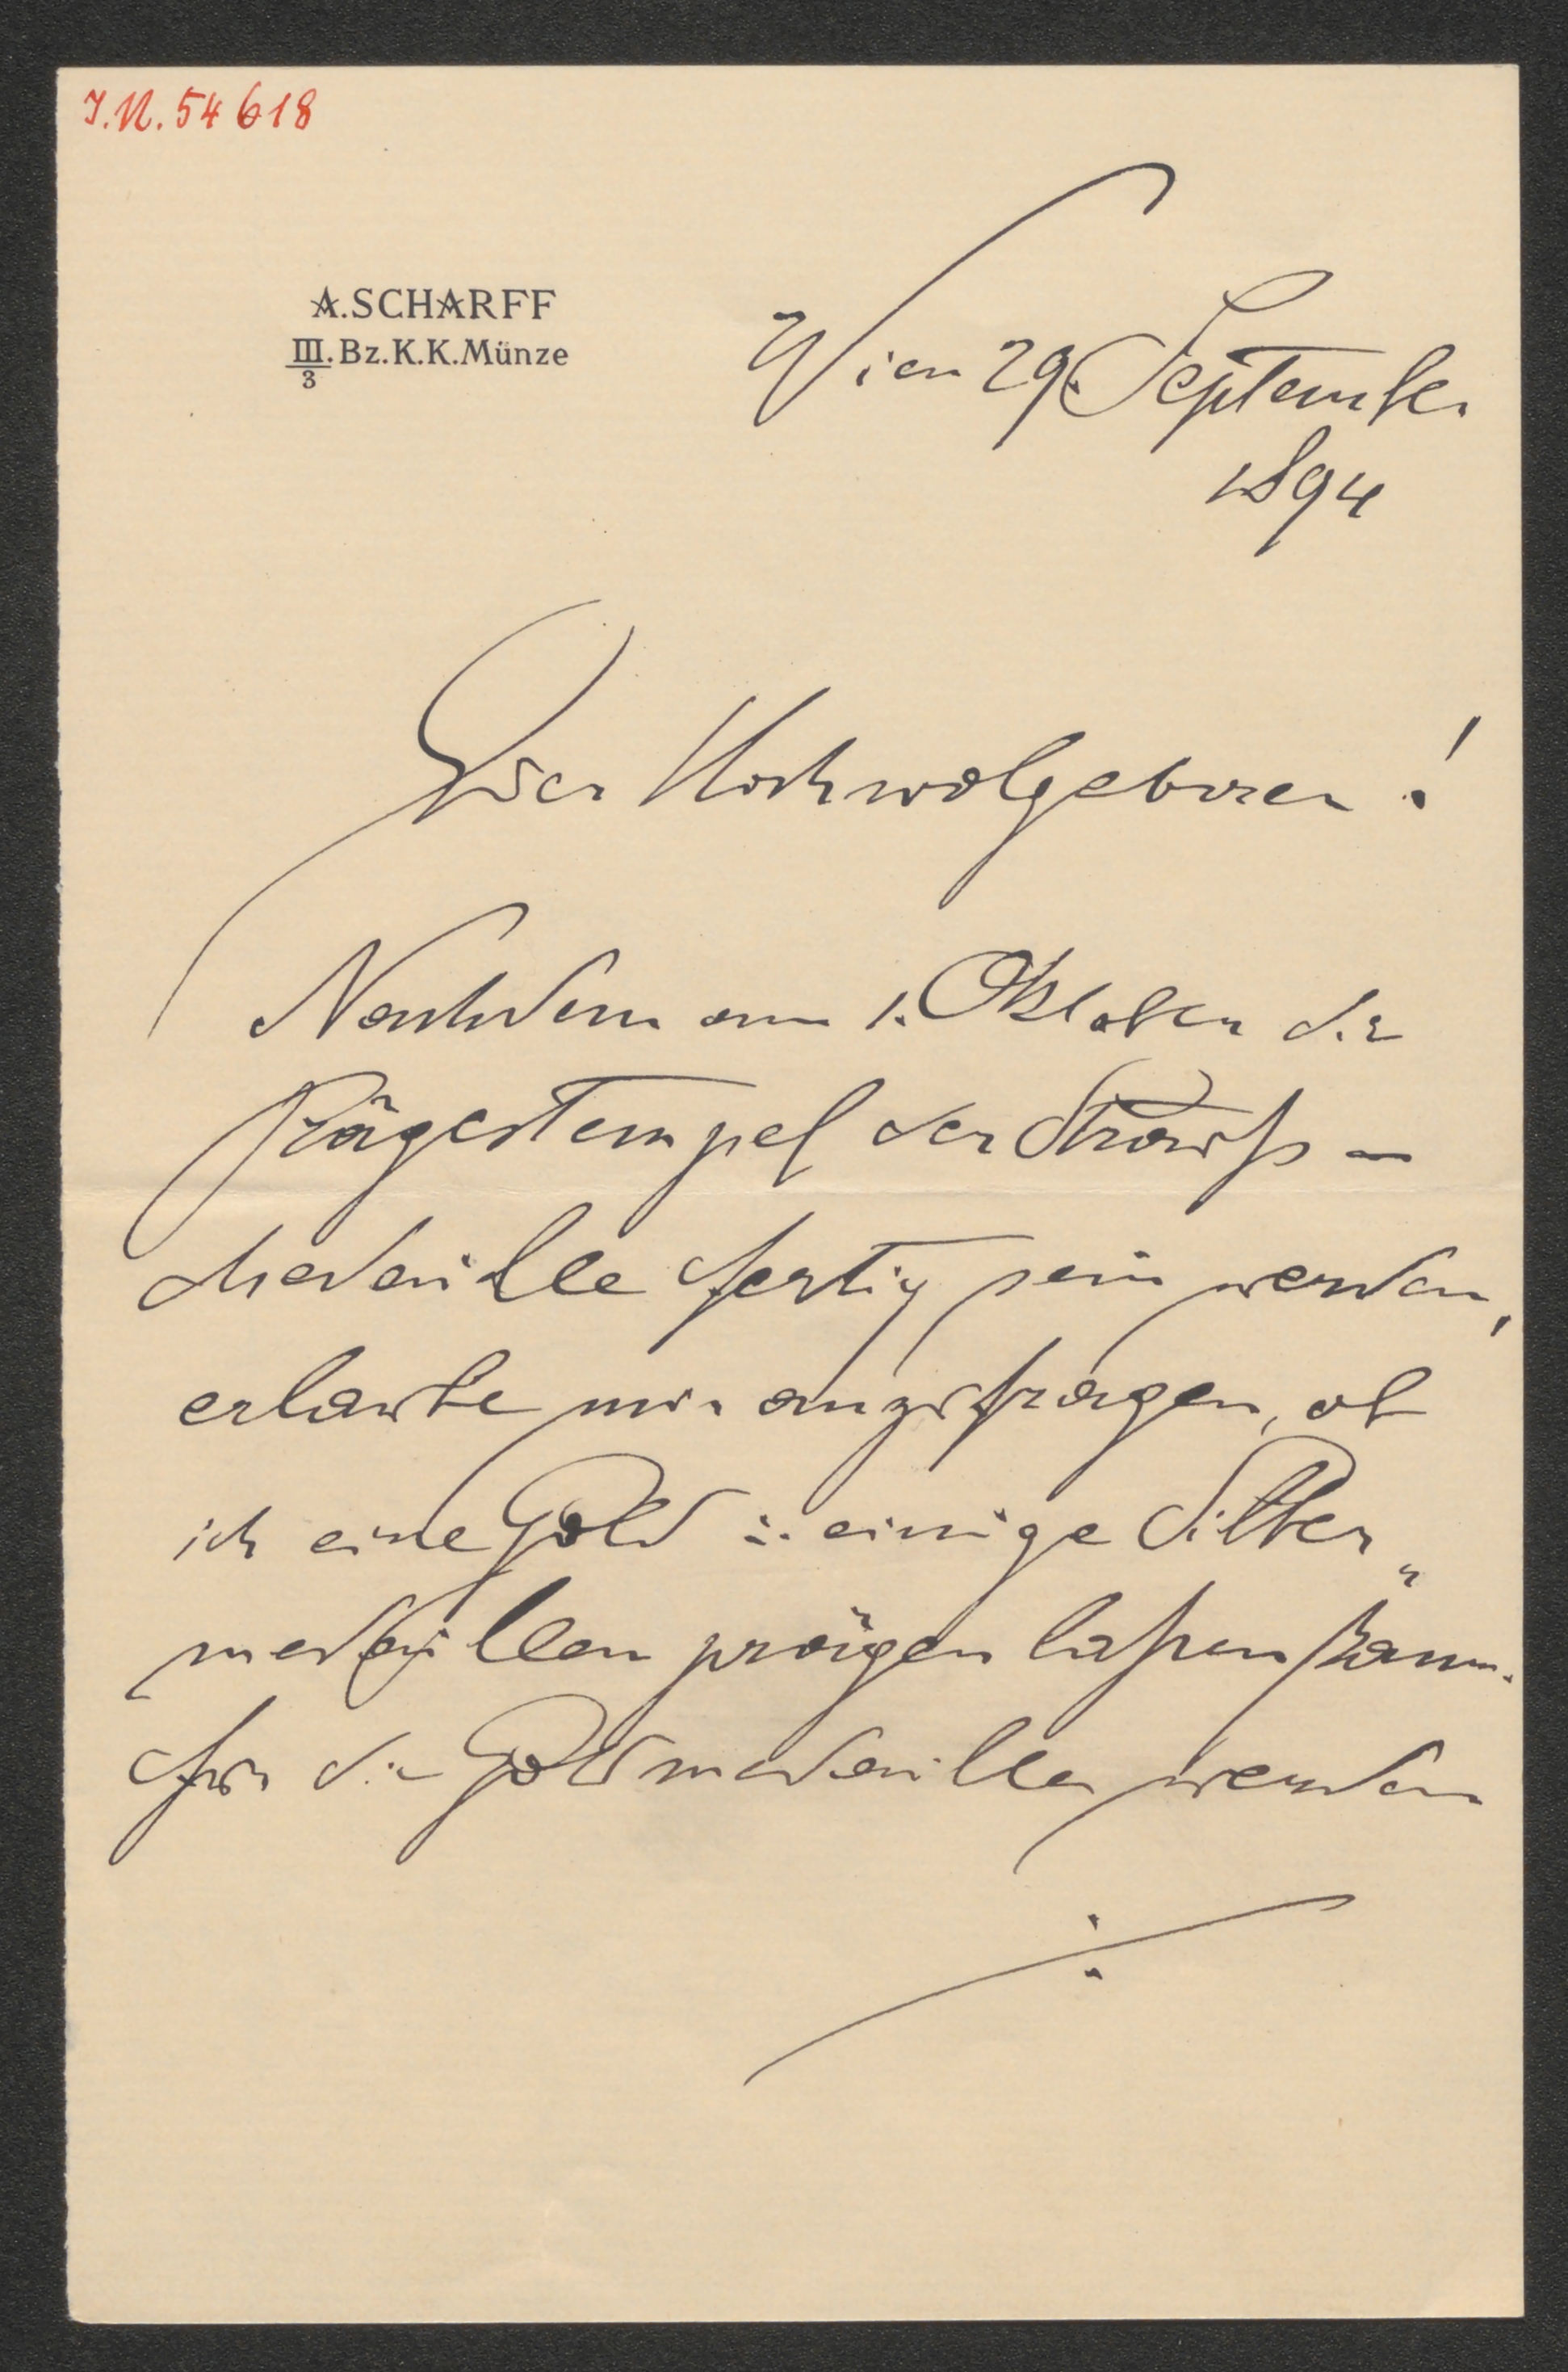 I.N. 54618
A. SCHARFF
III./3 Bz. K.K. Münze
Wien 29. September
1894
Euer Hochwolgeboren!
Nachdem am 1. Oktober die
Prägestempel der Strauß-
Medaille fertig sein werden,
erlaube mir anzufragen, ob
ich eine Gold u. einige Silber„
medaillen prägen laßen kann.
Für die Goldmedaille werden
./.